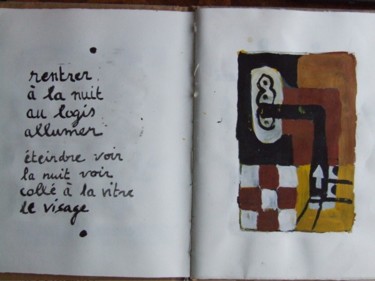 rentrer
à la nuit
au logis
allumer
éteindre voir
la nuit voir
collé à la vitre
le visage